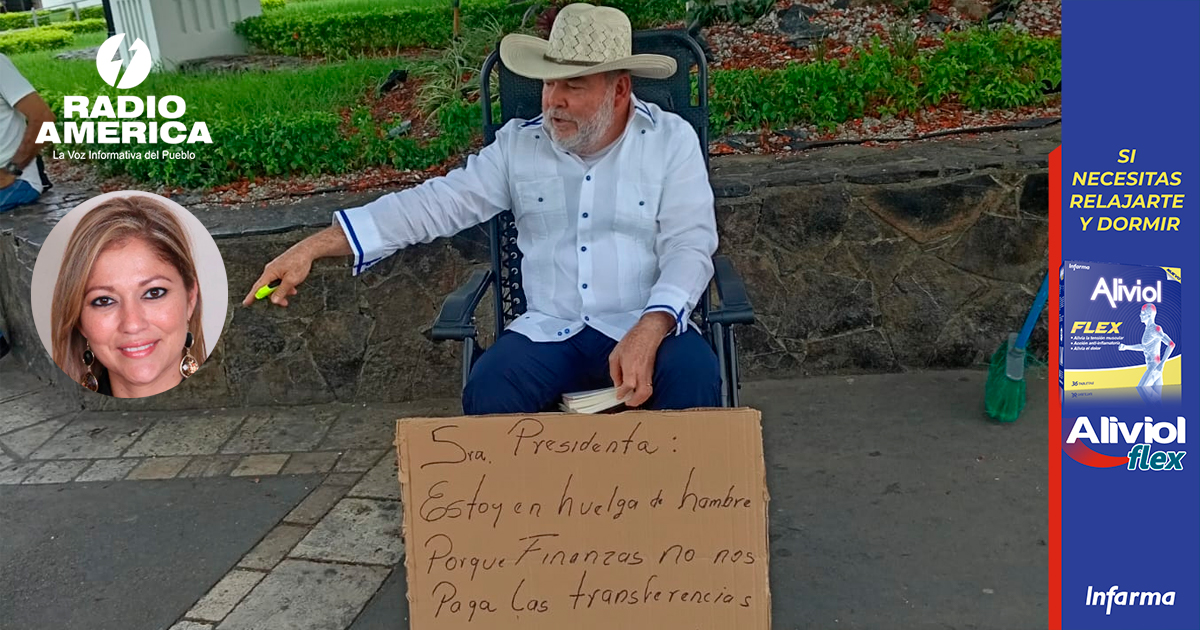 RADIO
AMERICA
La Voz Informativa del Pueblo
Sra. Presidenta:
Estoy en huelga de hambre
Porque Finanzas no nos
Paga las transferencias
SI
NECESITAS
RELAJARTE
Y DORMIR
Infarma
Aliviol
FLEX
• Alivia la tensión muscular
• Acción anti-inflamatoria
• Alivia el dolor
36 TABLETAS
Aliviol
flex
Infarma